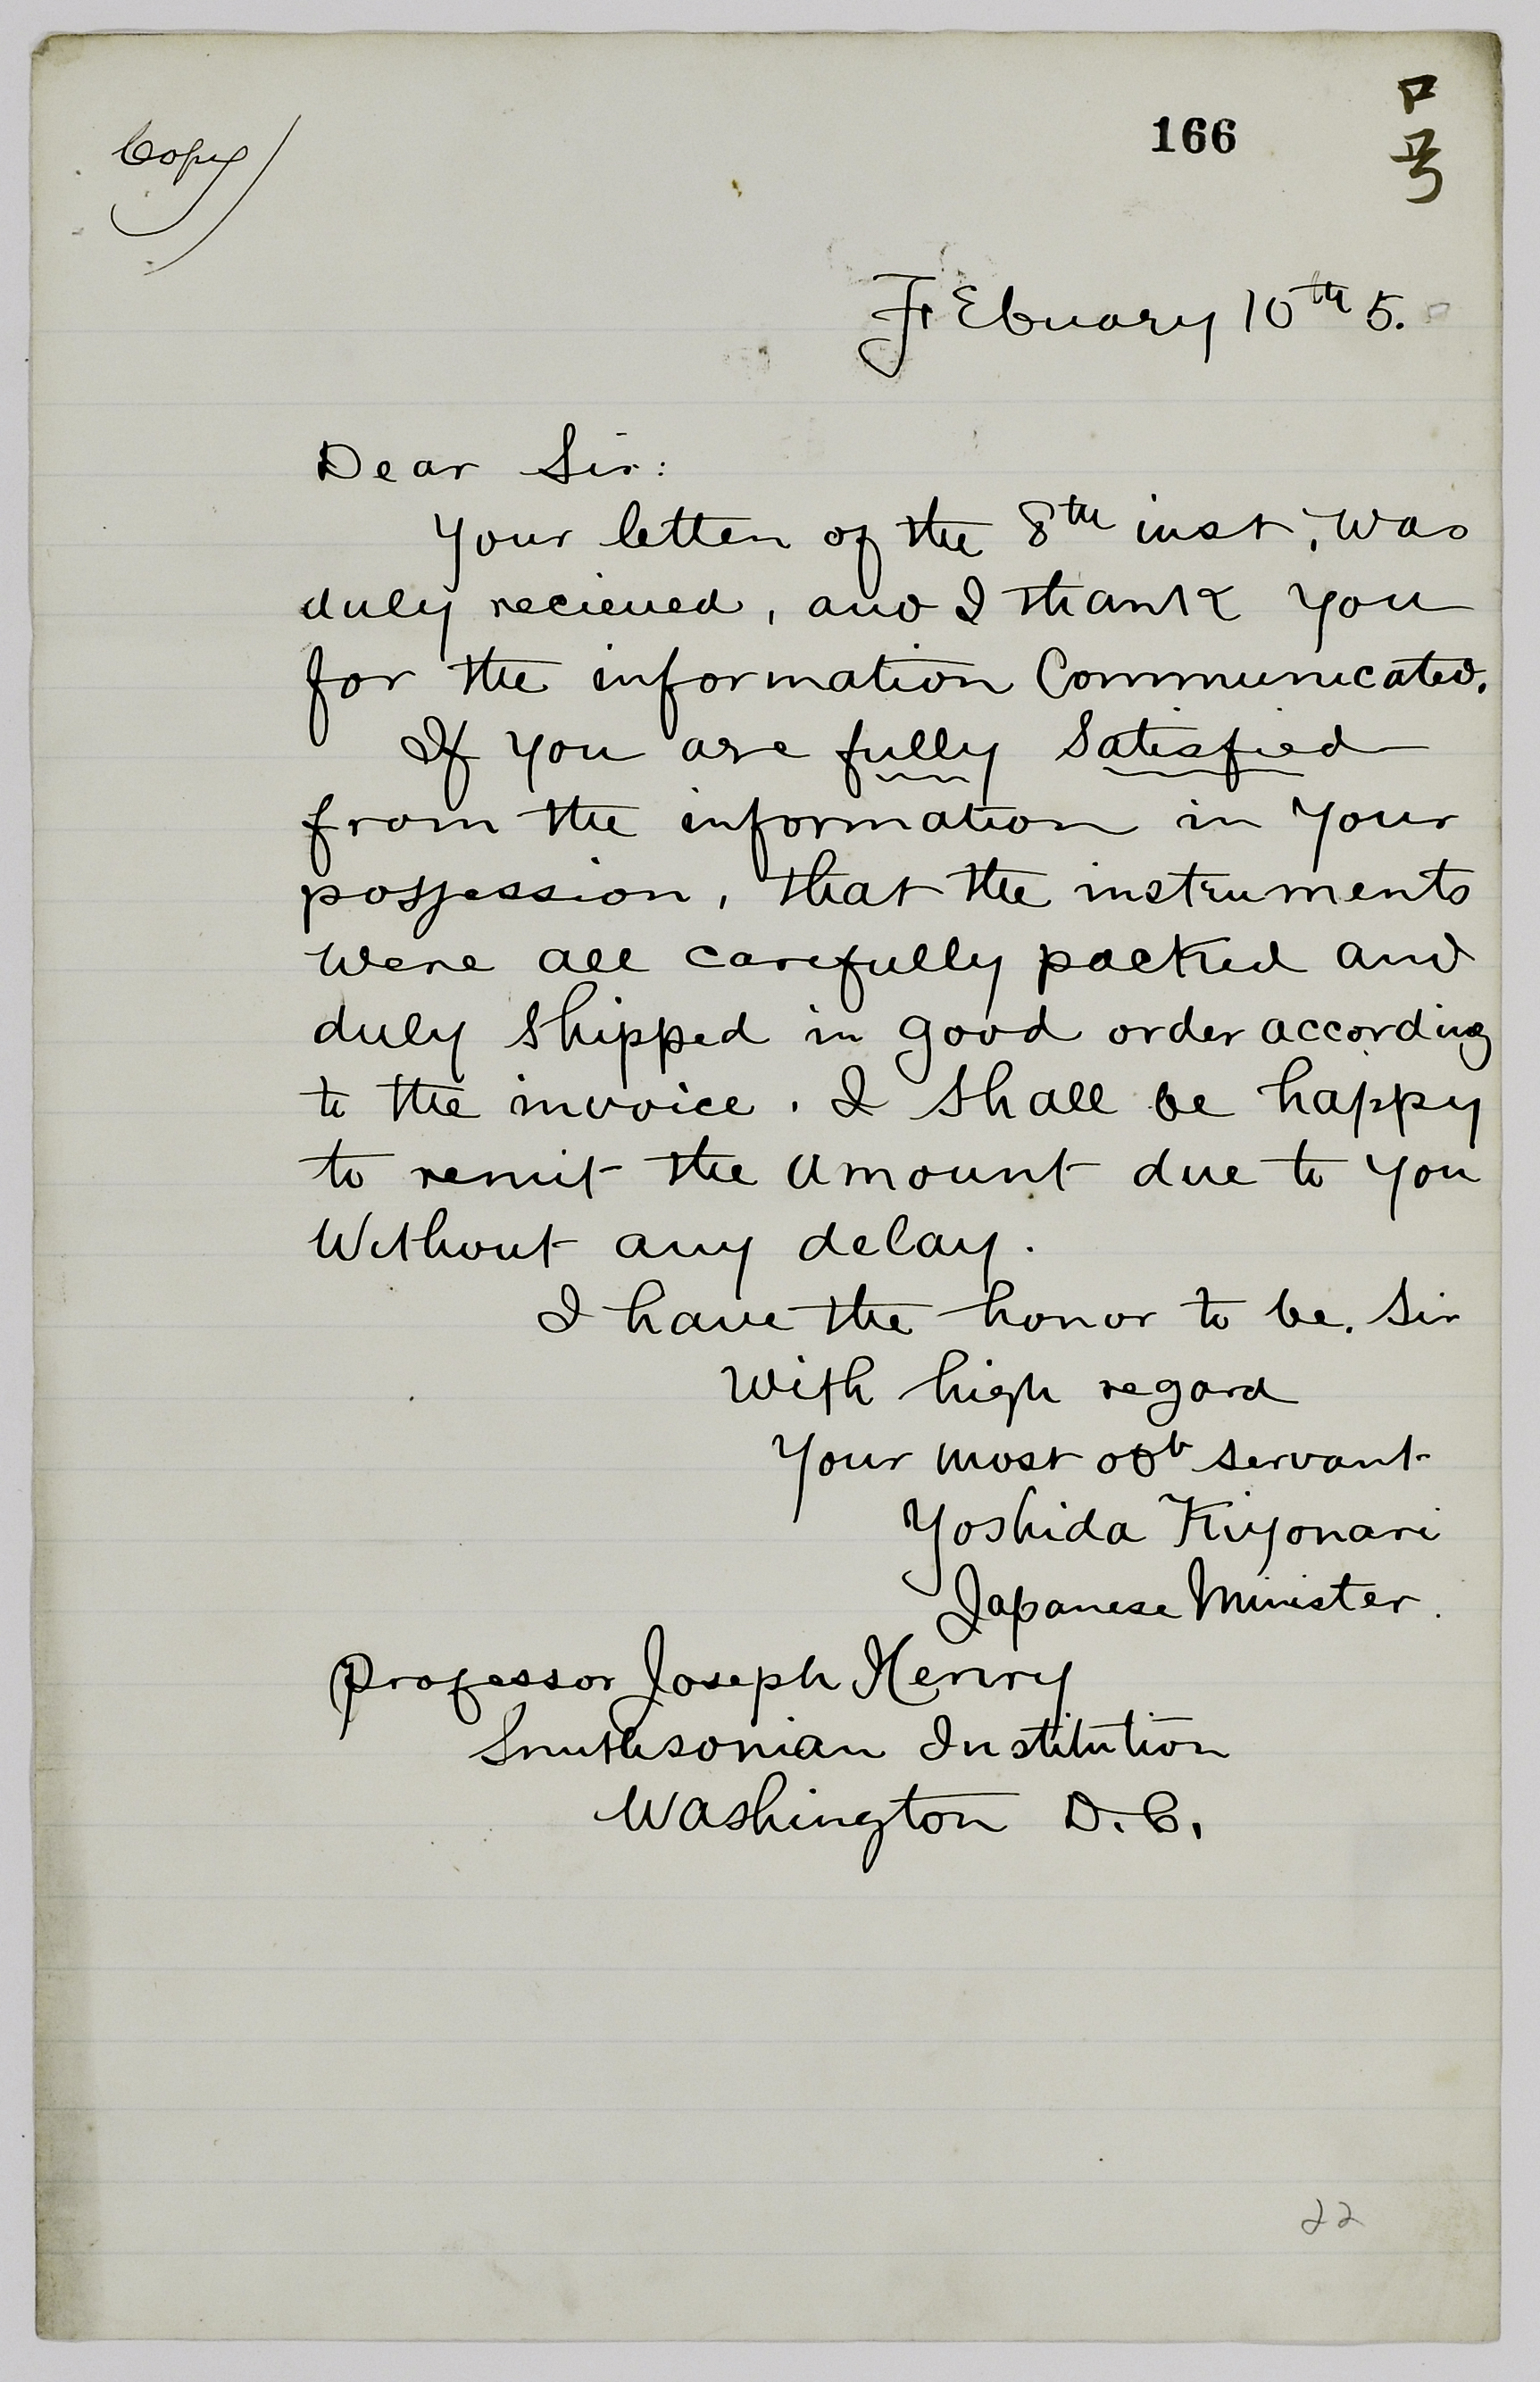 Copy
166
ロ
号
Febuary 10th 5.
Dear Sir:
Your letter of the 8th inst, was
duly recieved, and I thank you
for the information Communicated.
If you are fully satisfied
from the information in your
possession, that the instruments
were all carefully packed and
duly shipped in good order according
to the invoice. I shall be happy
to remit the amount due to you
Without any delay.
I have the honor to be. Sir
With high regard
Your most obt servant
Yoshida Kiyonari
Japanese Minister.
Professor Joseph Henry
Smithsonian Institution
Washington D.C.
22